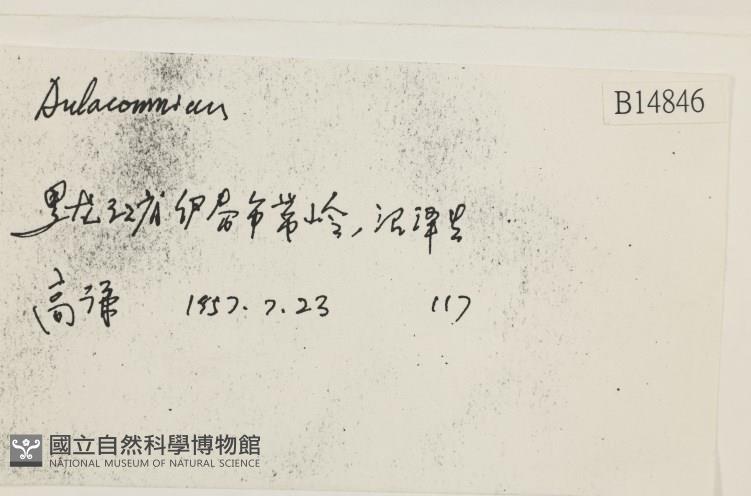 Aulacomnium
B14846
黑龙江省伊春市带岭,沼泽
高谦 1957.7.23 117
國立自然科學博物館
NATIONAL MUSEUM OF NATURAL SCIENCE